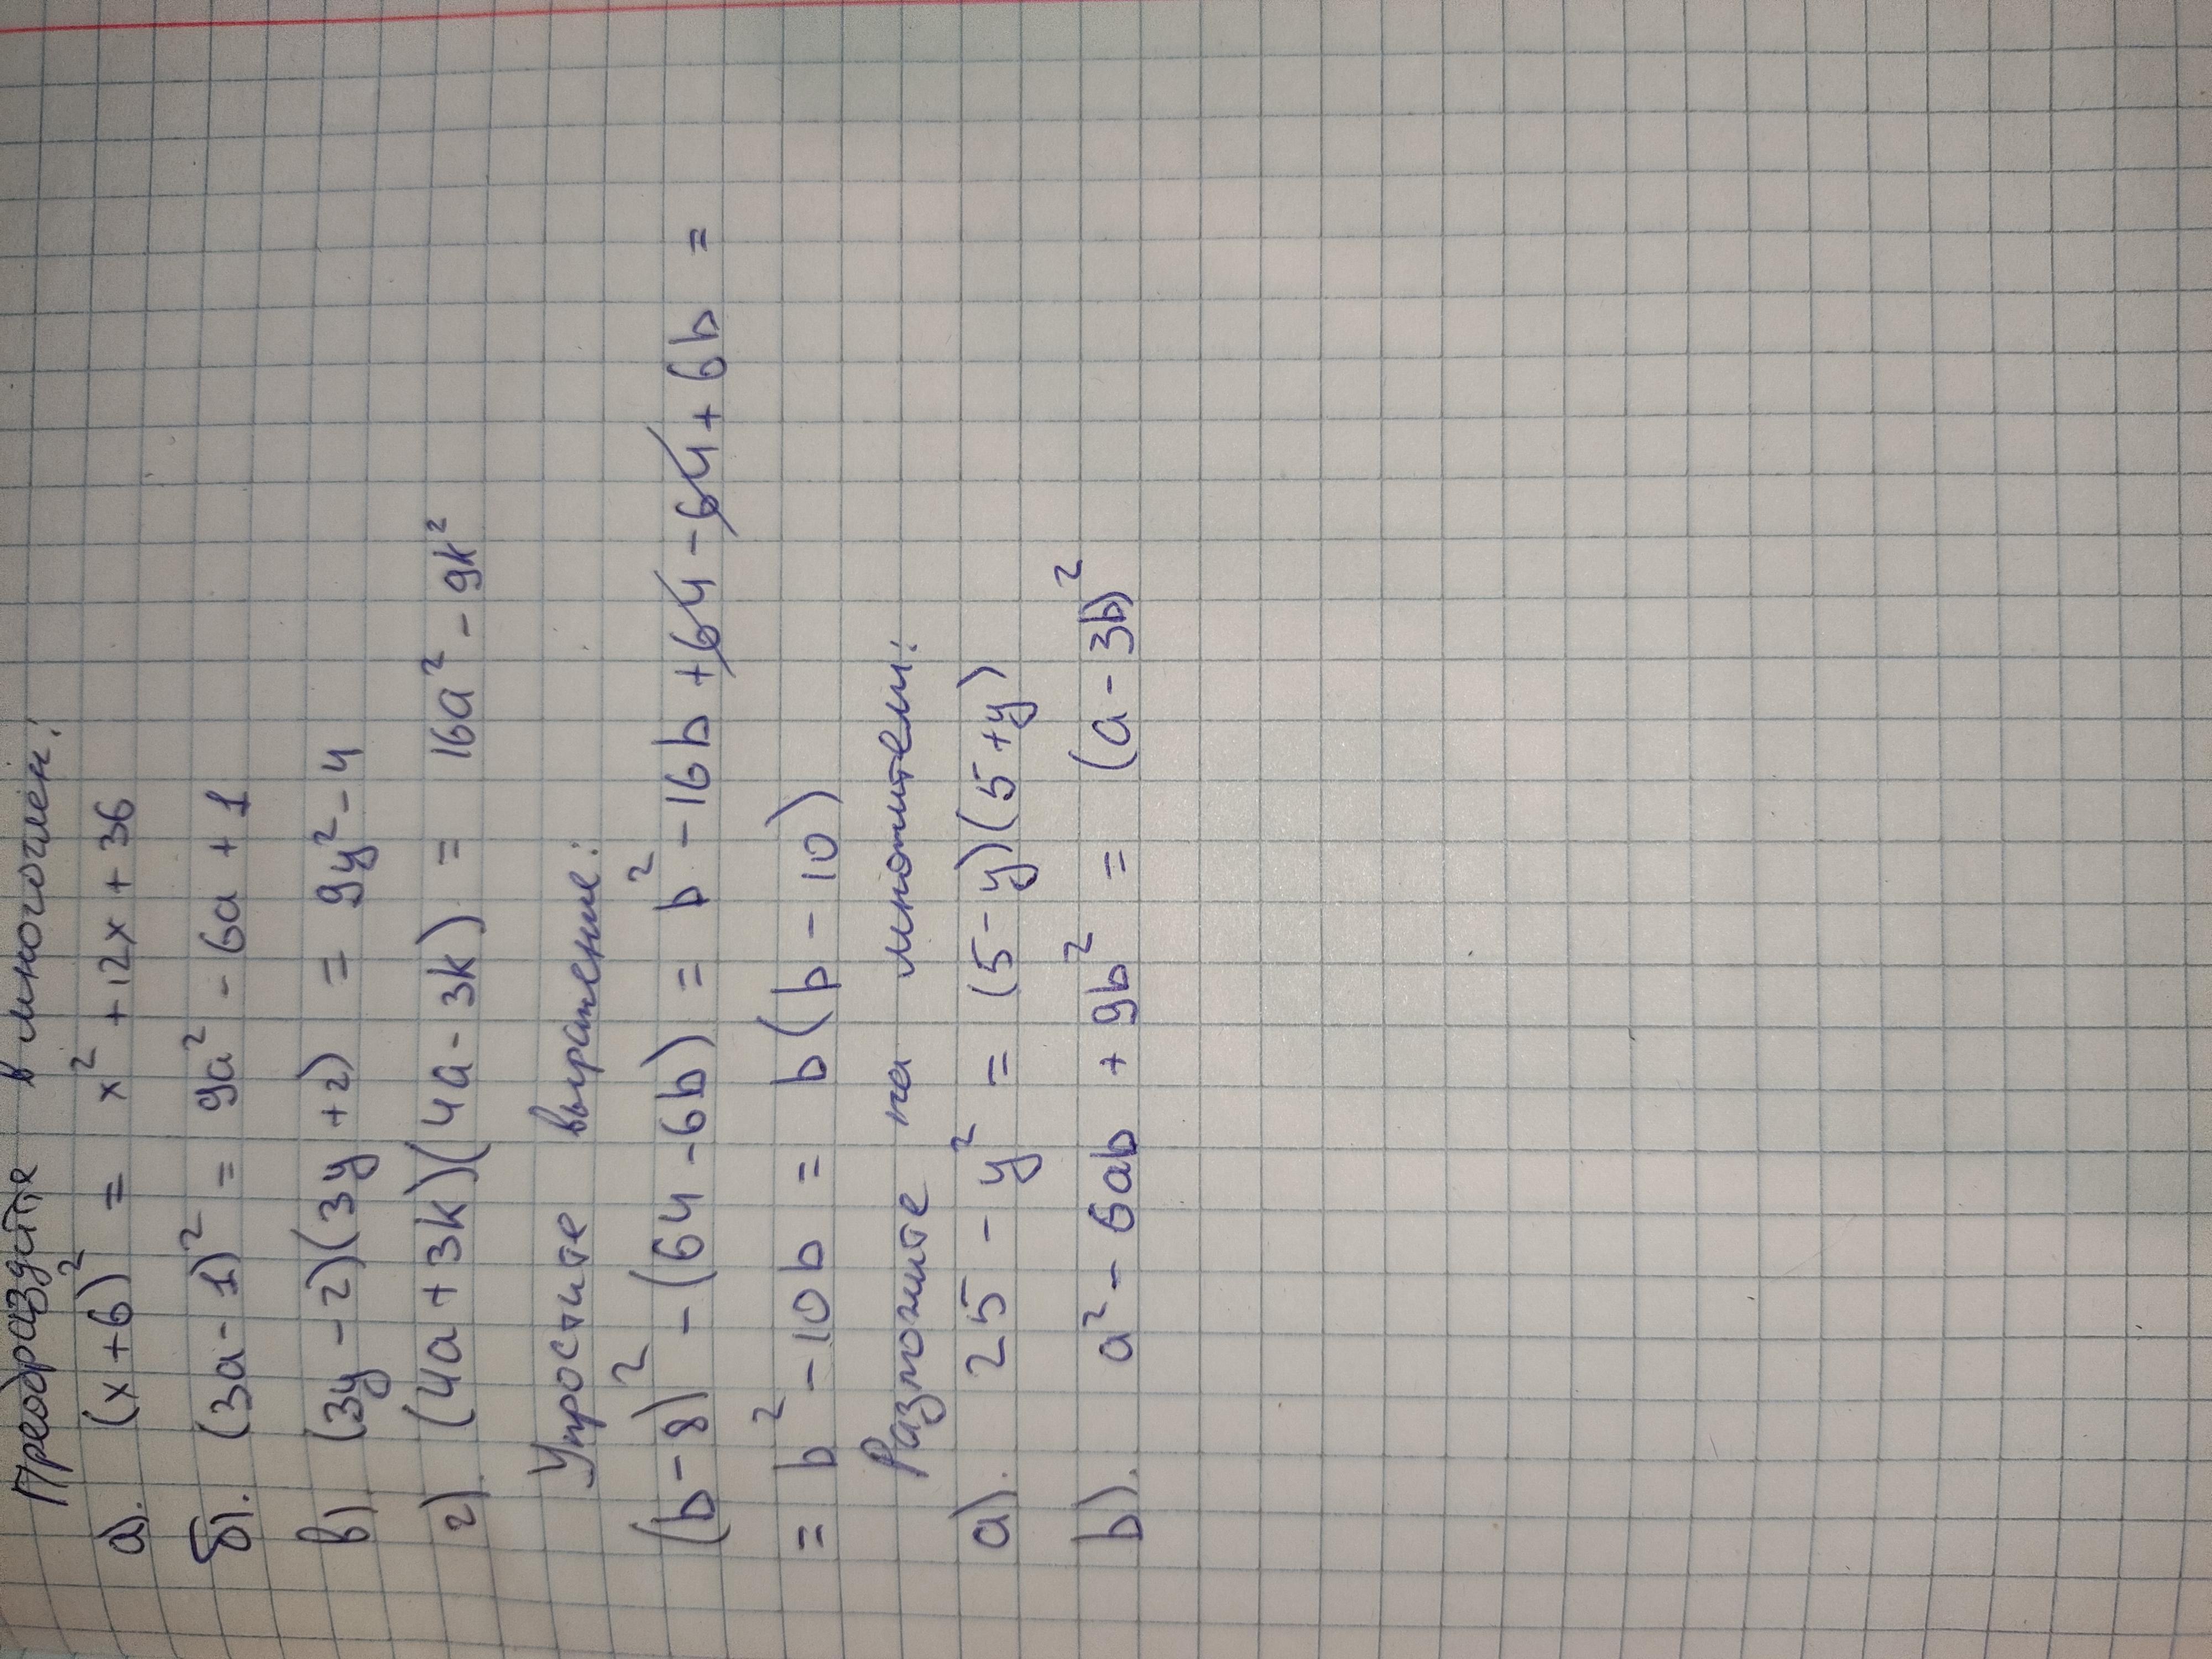 Преобразуйте в многочлен:
а). (x+6)² = x² + 12x + 36
б). (3a - 1)² = 9a² - 6a + 1
в) (3y - 2)(3y + 2) = 9y² - 4
г). (4a + 3k)(4a - 3k) = 16a² - 9k²
Упростите выражение:
(b - 8)² - (64 - 6b) = b² - 16b + 64 - 64 + 6b =
= b² - 10b = b(b - 10)
Разложите на множители:
а). 25 - y² = (5 - y)(5 + y)
b). a² - 6ab + 9b² = (a - 3b)²